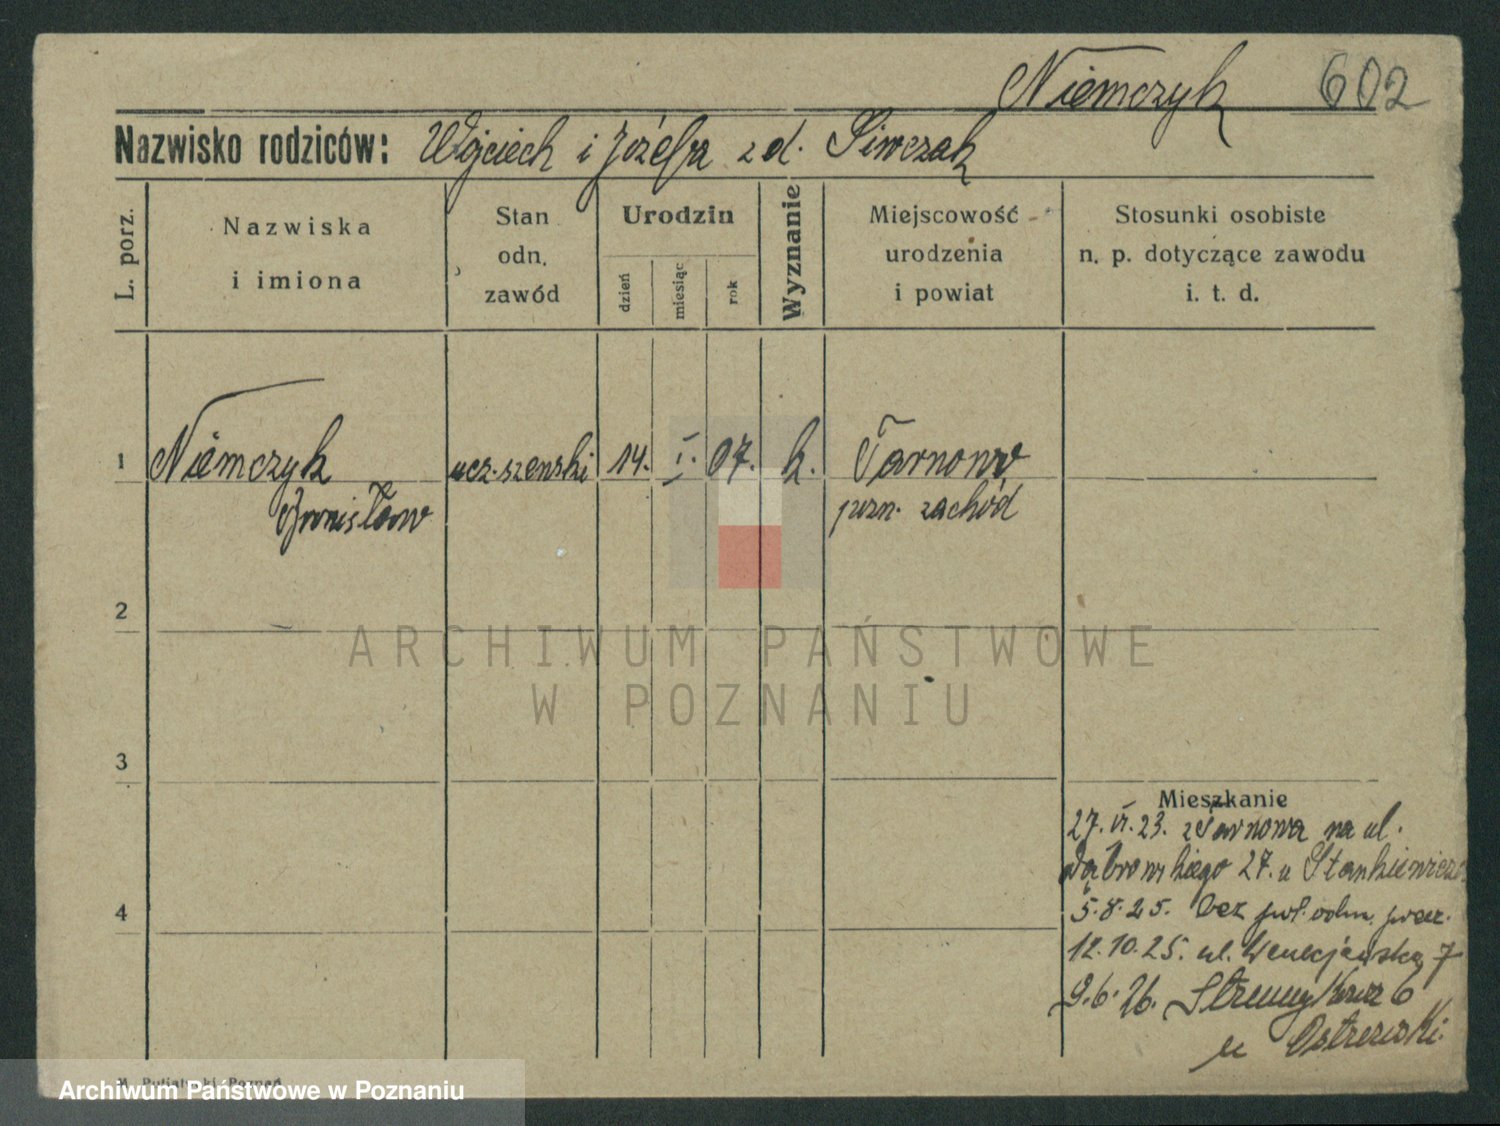 Niemczyk 602
Nazwisko rodziców: Wojciech i Józefa z d. Siwczak
L. porz.
Nazwiska
i imiona
Stan
odn.
zawód
Urodzin
dzień
miesiąc
rok
Wyznanie
Miejscowość
urodzenia
i powiat
Stosunki osobiste
n. p. dotyczące zawodu
i. t. d.
1 Niemczyk ucz. szewski 14. I. 07. k. Tarnowo
Bronisław pozn. zachód
2
3
4
Mieszkanie
27. VI. 23. z Tarnowa na ul.
Dąbrowskiego 27. u Stankiewicza
5. 8. 25. bez pol. odm.
12. 10. 25. ul. Wenecjańska 7
9. 6. 26. 6
u Ostrzewski
ARCHIWUM PAŃSTWOWE
W POZNANIU
Archiwum Państwowe w Poznaniu